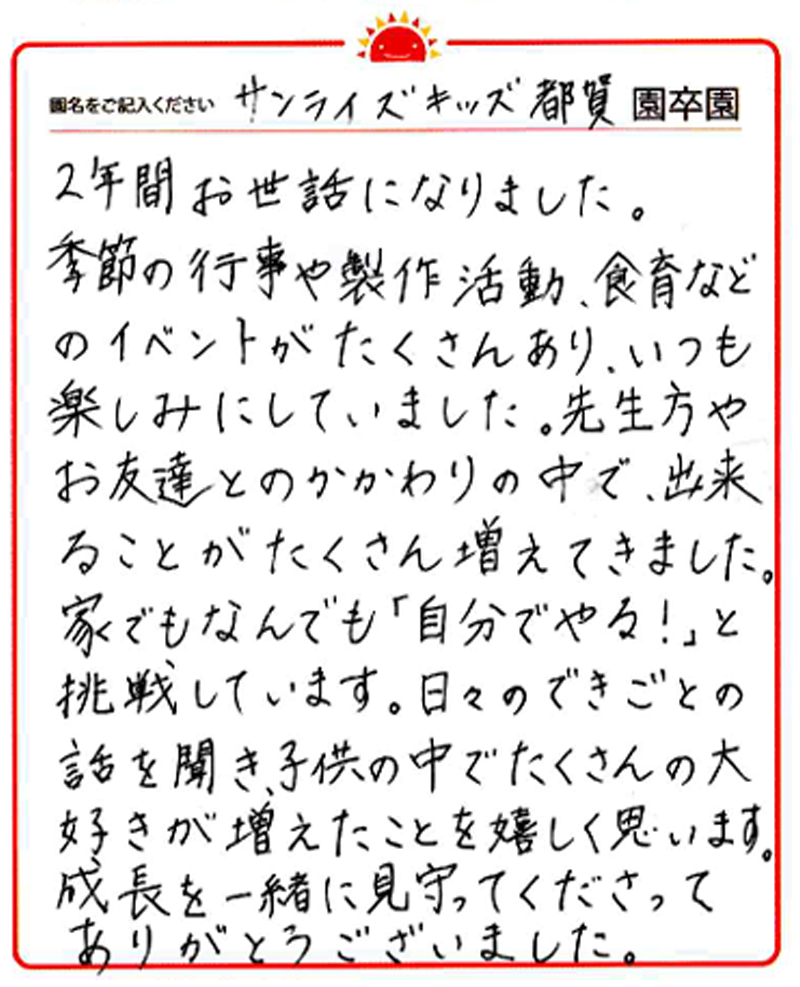 園名をご記入ください サンライズキッズ都賀 園卒園
2年間お世話になりました。
季節の行事や製作活動、食育など
のイベントがたくさんあり、いつも
楽しみにしていました。先生方や
お友達とのかかわりの中で、出来
ることがたくさん増えてきました。
家でもなんでも「自分でやる!」と
挑戦しています。日々のできごとの
話を聞き、子供の中でたくさんの大
好きが増えたことを嬉しく思います。
成長を一緒に見守ってくださって
ありがとうございました。